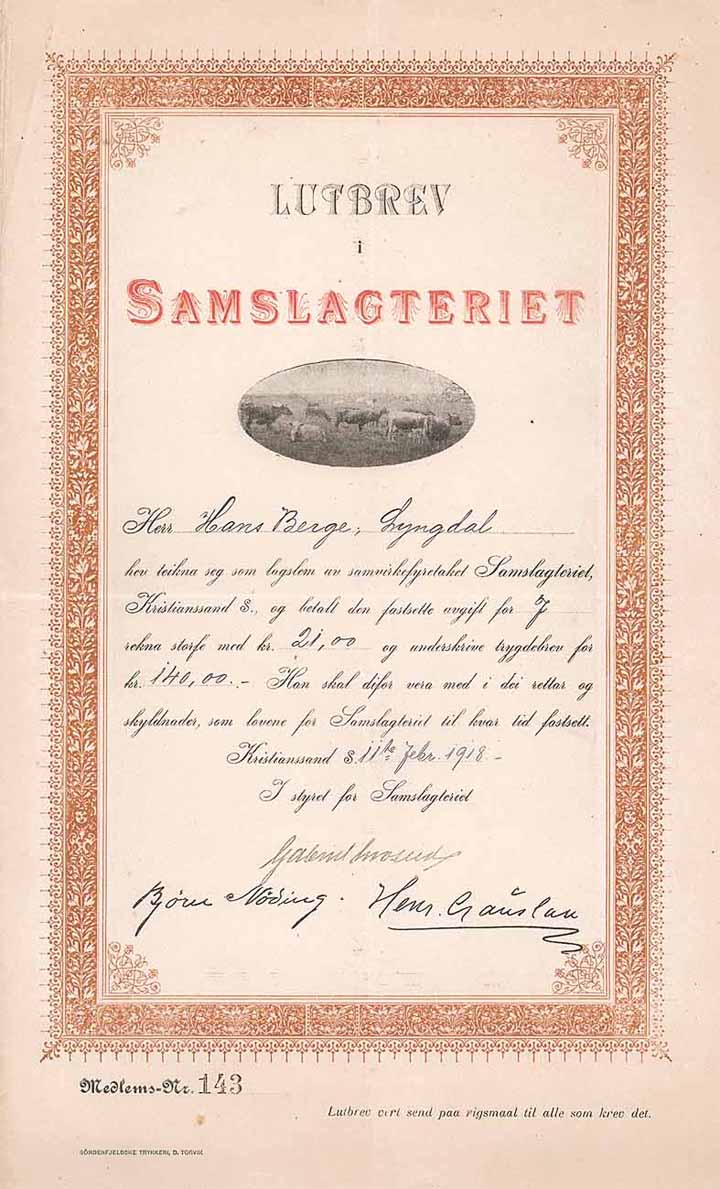 LUTBREV
i
SAMSLAGTERIET
Herr Hans Berge, Lyngdal
hev teikna seg som lagslem av samvirkefyretaket Samslagteriet,
Kristianssand S., og betalt den fastsette avgift for 7
rekna storfe med kr. 21,00 og underskrive trygdebrev for
kr. 140,00.- Han skal difor vera med i dei rettar og
skyldnader, som lovene for Samslagteriet til kvar tid fastsett.
Kristianssand S. 11te Febr. 1918 -
I styret for Samslagteriet
Bjørn Nöding. Henr.
Medlems-Nr. 143
Lutbrev vert send paa rigsmaal til alle som krev det.
SÖNDENFJELDSKE TRYKKERI, D. TORVIK